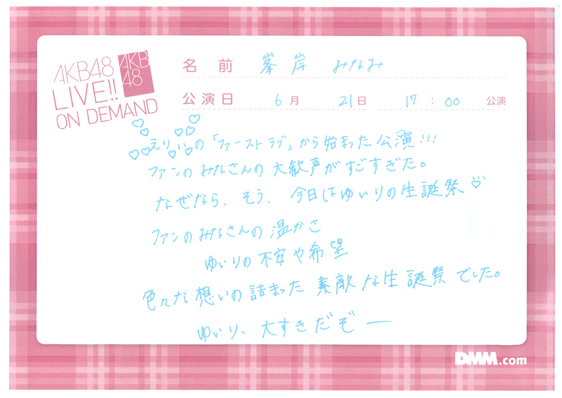 AKB48
LIVE!!
ON DEMAND
AKB
48
名前 峯岸 みなみ
公演日 6月 21日 17:00 公演
えりぃの「ファーストラブ」から始まった公演!!!
ファンのみなさんの大歓声がすごすぎた。
なぜなら、そう、今日はゆいりの生誕祭
ファンのみなさんの温かさ
ゆいりの不安や希望
色々な想いの詰まった素敵な生誕祭でした。
ゆいり、大すきだぞー
DMM.com